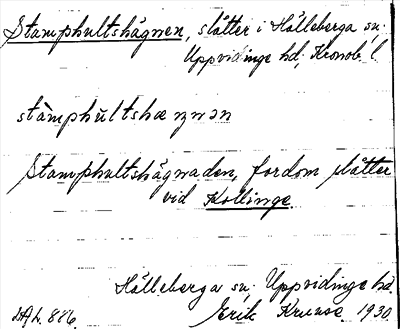 Stamphultshägnen, slåtter i Hälleberga sn.
Uppvidinge hd, Kronob. l.
stàmphŭltshæŋnən
Stamphultshägnaden, fordom slåtter
vid Kollinge.
Hälleberga sn, Uppvidinge hd.
Erik Kruuse. 1930.